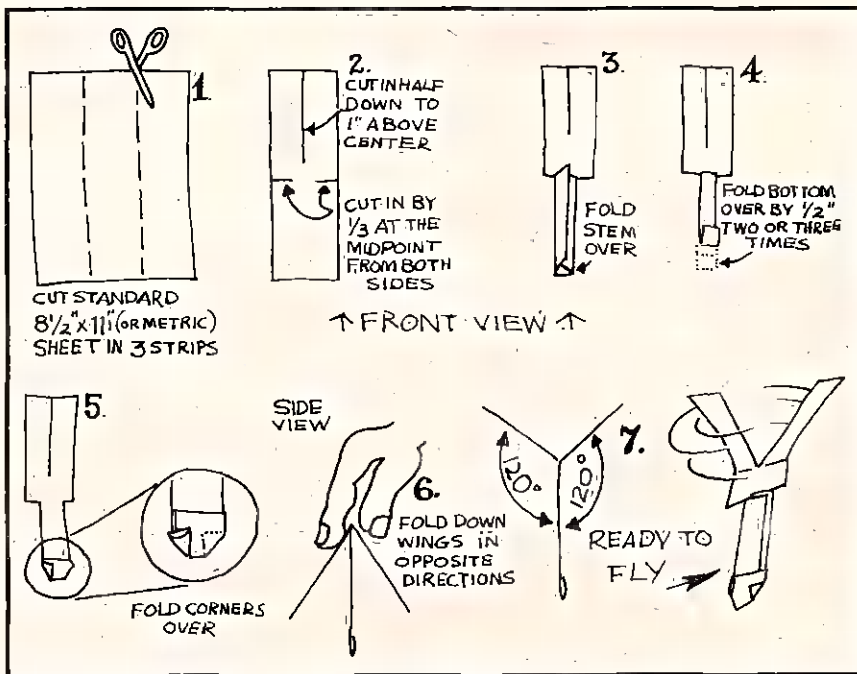 1.
CUT STANDARD
8 1/2" x 11" (OR METRIC)
SHEET IN 3 STRIPS
2.
CUT IN HALF
DOWN TO
1" ABOVE
CENTER
CUT IN BY
1/3 AT THE
MIDPOINT
FROM BOTH
SIDES
3.
FOLD
STEM
OVER
4.
FOLD BOTTOM
OVER BY 1/2"
TWO OR THREE
TIMES
↑ FRONT VIEW ↑
5.
FOLD CORNERS
OVER
SIDE
VIEW
6.
FOLD DOWN
WINGS IN
OPPOSITE
DIRECTIONS
7.
120°
120°
READY TO
FLY